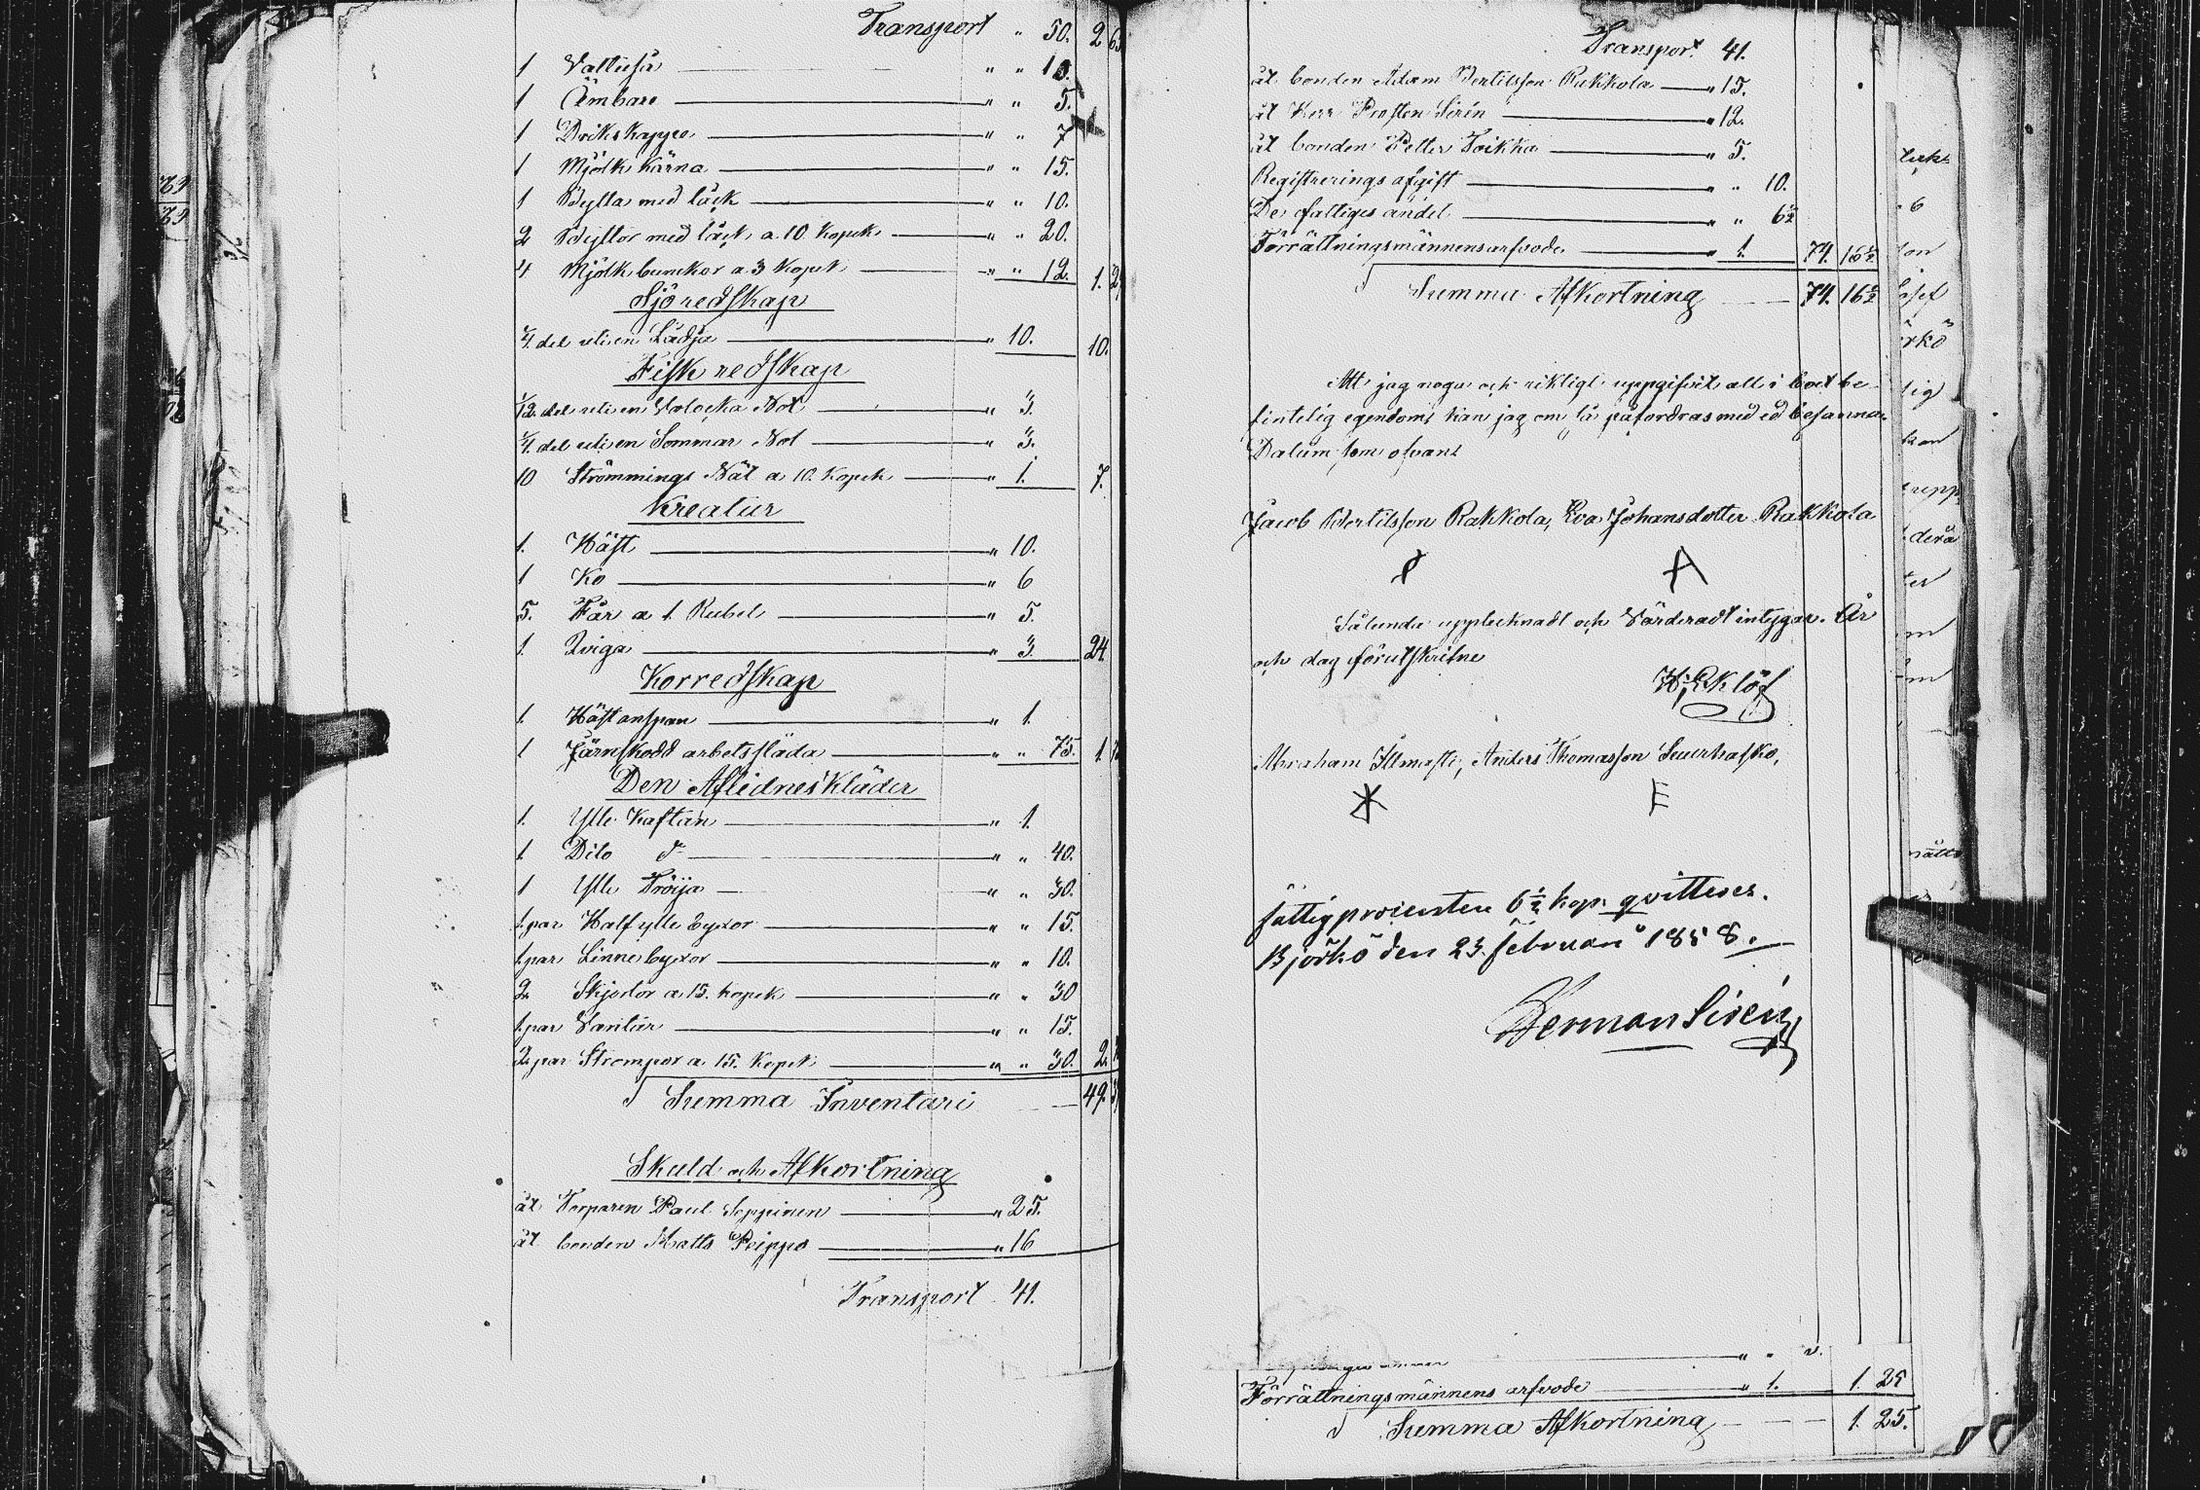 Transport " 50. 2 63
1 Vattuså " " 10.
1 Ämbare " " 5.
1 Drikskappe " " 7
1 Mjölk kärna " " 15.
1 Bytta med låck " " 10.
2 Byttor med låck a 10 Kopek " " 20.
4 Mjölk bunckar a 3 Kopek " " 12. 1. 29
Sjöredskap
1/4 del uti en Lådja " 10. 10.
Fiskredskap
1/12 del uti en Not " 3.
1/4 del uti en Sommar Not " 3.
10 Strömmings Nät a 10 Kopek " 1. 7.
Kreatur
1. Häst " 10.
1 Ko " 6
5. Får a 1 Rubel " 5.
1. Qviga " 3. 24
Körredskap
1. Hästanspan " 1.
1 Järnskodd arbetssläda " " 75. 1.
Den Aflidnes Kläder
1. Ylle Kaftan " 1.
1. Dito d " " 40.
1 Ylle Tröija " " 30.
1 par Halfylle byxor " " 15.
1 par Linne byxor " " 10.
2 Skjortor a 15. Kopek " " 30
1 par Vantar " " 15.
2 par Strumpor a 15. Kopek " " 30. 2.
Summa Inventari 49.
Skuld och Afkortning
åt Torparen Paul Seppinen " 25.
åt bonden Matts Peippo " 16
Transport 41.
Transport 41.
åt bonden Adam Bertilsson Rakkola " 15.
åt Herr Prosten Sirén " 12.
åt bonden Petter Toikka " 5.
Registrerings afgift " " 10.
De fattiges andel " " 6 1/2
Förrättningsmännens arfvode " 1. 74. 16 1/2
Summa Afkortning 74. 16 1/2
Att jag noga och riktigt uppgifvit all i boet be-
fintelig egendom, kan jag om så påfordras med ed besanna.
Datum som ofvan.
Jacob Bertilsson Rakkola, Eva Johansdotter Rakkola
Sålunda upptecknadt och Värderadt intygar. År
och dag förutskrifne
H. Eklöf
Abraham Anders Thomasson
fattigprocenten 6 1/2 kop. qvitteras.
Björkö den 23 februari 1858.
Herman Sirén
Förrättningsmännens arfvode " 1. 1. 25
Summa Afkortning 1. 25.